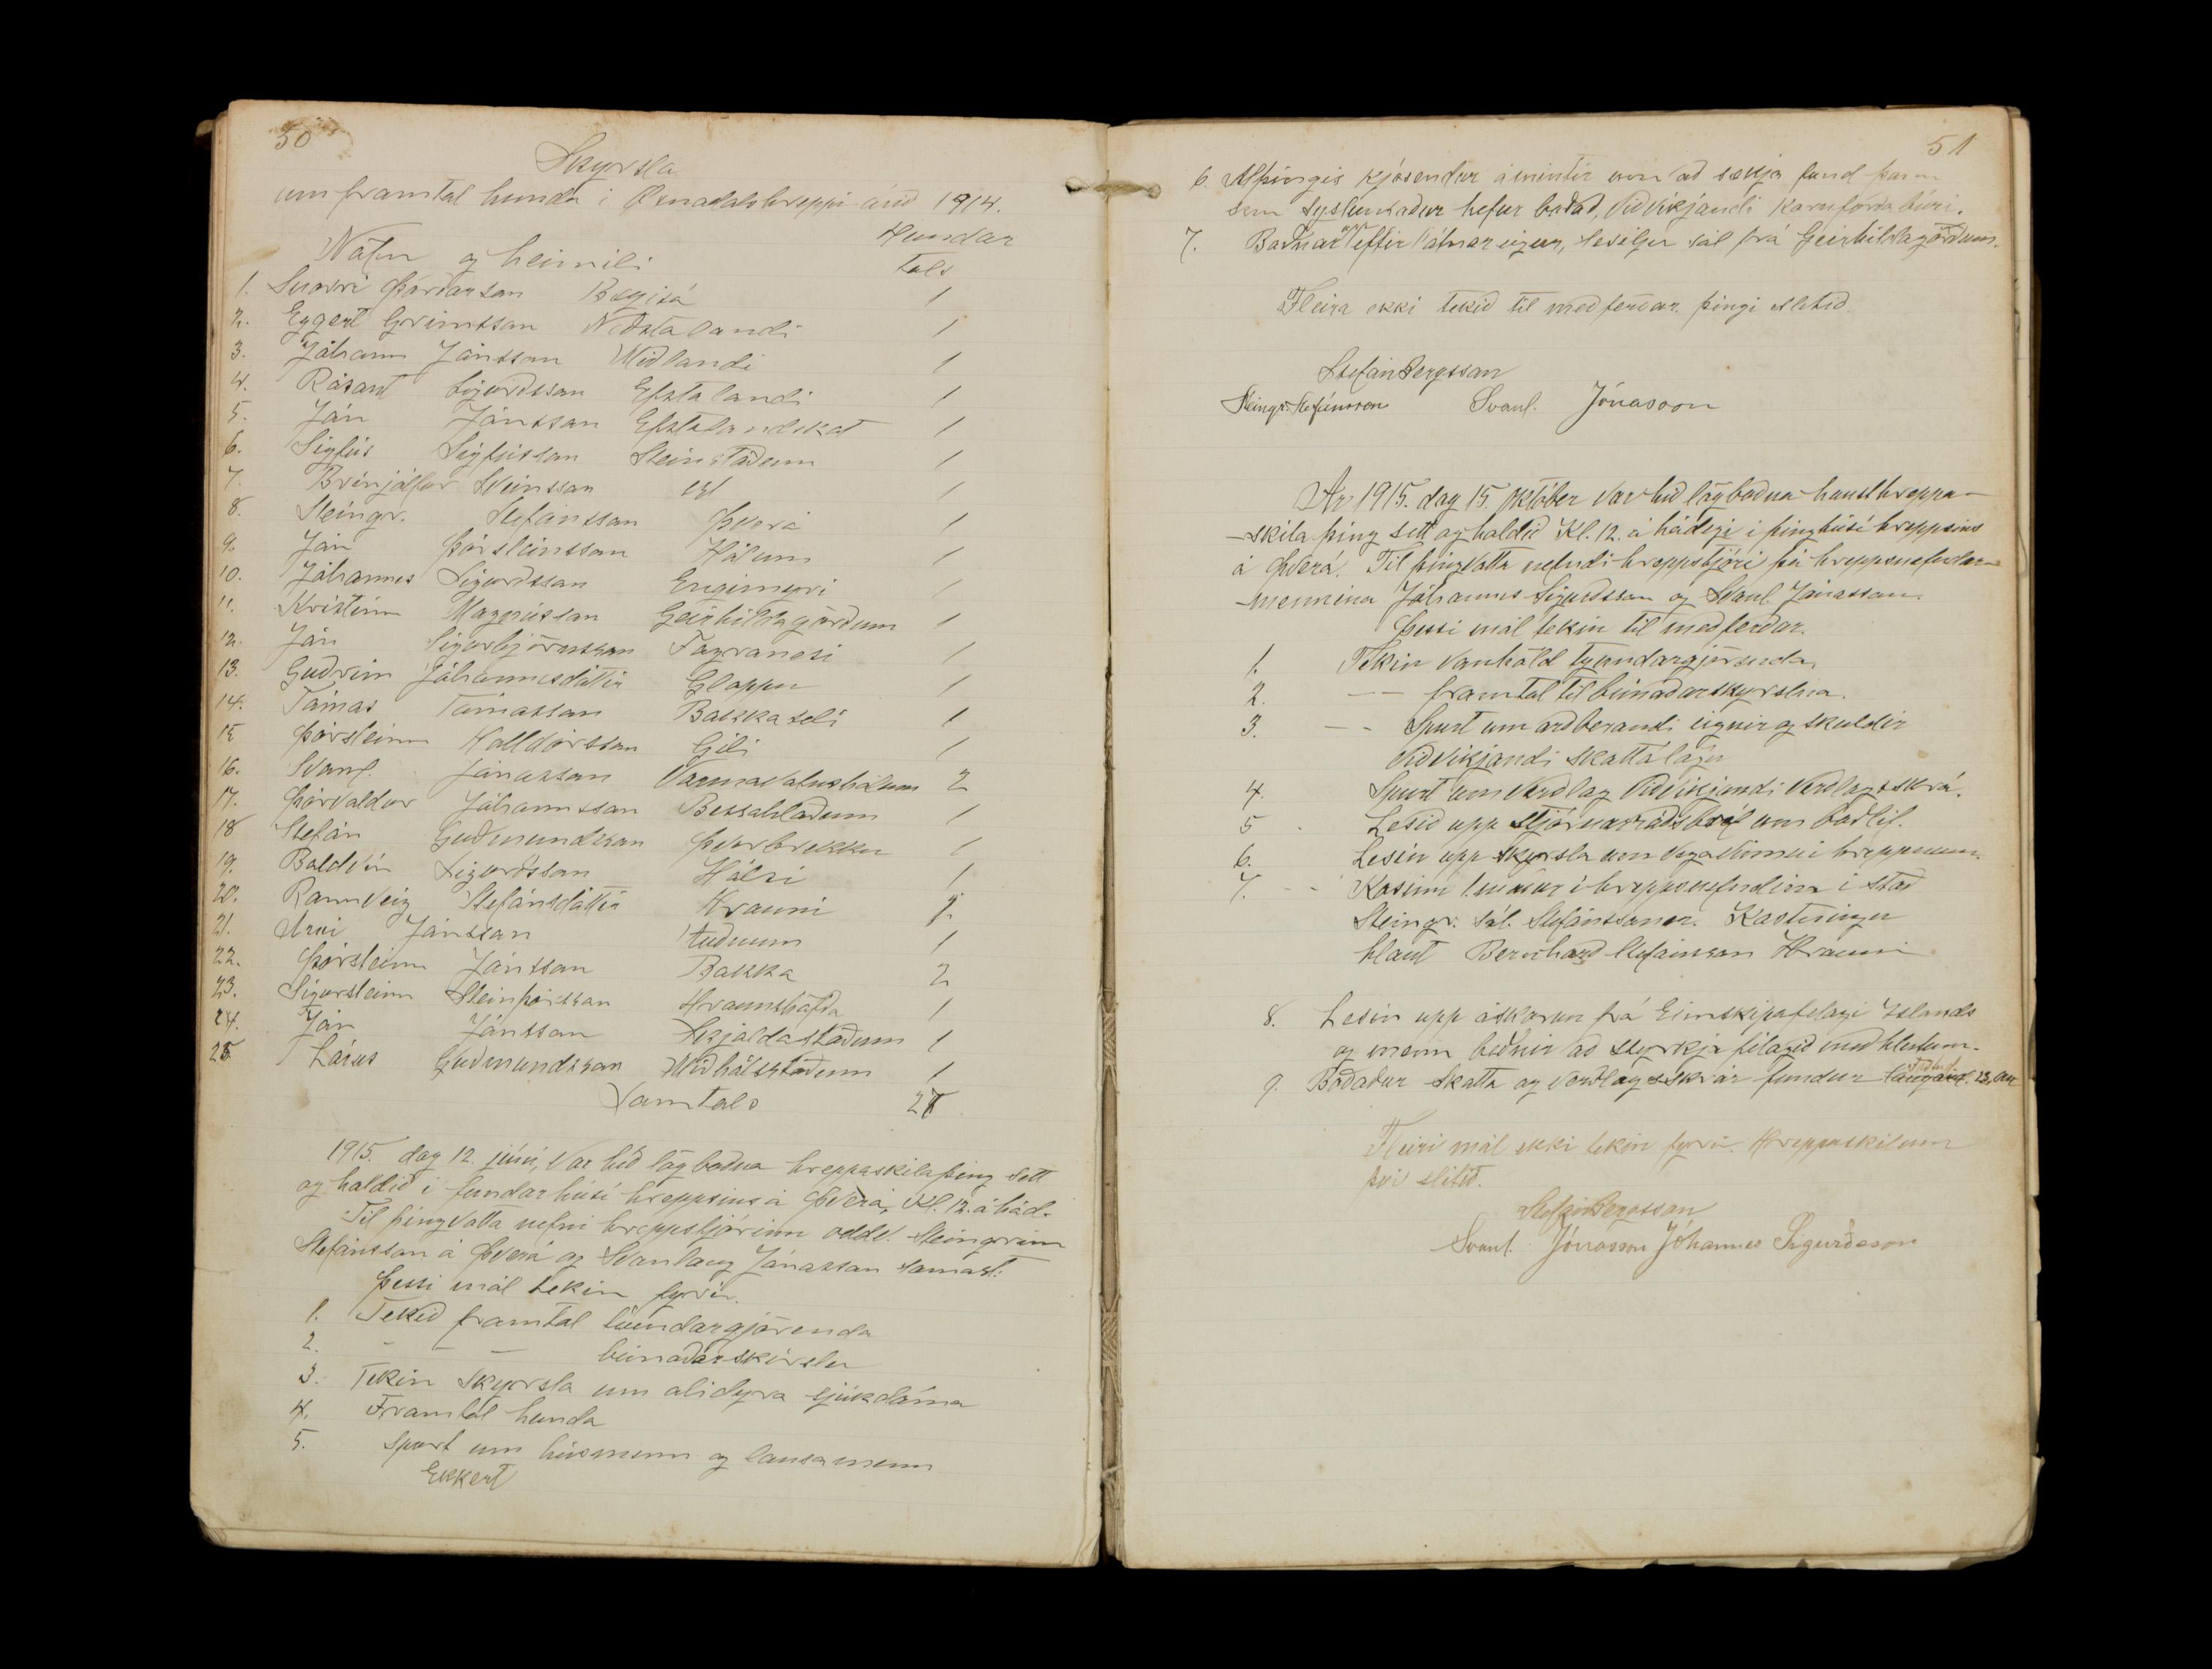 50
Skyrsla
um framtal hunda i Öxnadalshreppi árið 1914.
Nöfn og heimili Hundar
tals
1. Snorri Þórðarson Bægisá 1
2. Eggert Grímsson Neðstalandi 1
3. Jóhann Jónsson Miðlandi 1
4. Rósant Sigurðsson Efstalandi 1
5. Jón Jónsson Efstalandskot 1
6. Sigfús Sigfússon Steinstöðum 1
7. Brínjólfur Sveinsson 1
8. Steingr. Stefánsson Þverá 1
9. Jón Þórsteinsson Hólum 1
10. Jóhannes Sigurðsson Engimyri 1
11. Kristinn Magnússon Geirhildagörðum 1
12. Jón Sigurbjörnsson Fagranesi 1
13. Guðrún Jóhannesdóttir Gloppu 1
14. Tómas Tómasson Bakkaseli 1
15 Þórsteinn Halldórsson Gili 1
16. Svanl. Jónasson Varmavatnshólum 2
17. Þórvaldur Jóhannsson Bessahlöðum 1
18 Stefán Guðmundsson Þverbrekku 1
19. Baldvin Sigurðsson Hálsi 1
20. Rannveig Stefánsdóttir Hrauni
21. Árni Jónsson 1
22. Þórsteinn Jónsson Bakka 2
23. Sigursteinn Steinþórsson Hraunshöfða 1
24. Jón Jónsson Skjaldastöðum 1
25. Lárus Guðmundsson Miðhálsstöðum 1
Samtals
1915. dag 12. júní, var hið lögboðna hreppaskilaþing sett
og haldið i fundarhúsi hreppsins á Þverá, Kl. 12. á hád.
Til þingvotta nefni hreppstjórinn oddv. Steingrím
Stefánsson á Þverá og Svanlaug Jónasson samast:
Þessi mál tekin fyrir.
1. Tekið framtal tíundargjörenda
2. - - - búnaðarskírslu
3. Tekin skyrsla um alidyra sjúkdóma
4. Framtöl hunda
5. Spurt um húsmenn og lausamenn
Ekkert
51
6. Alþingis kjósendur ámintir um að sækja fund þann
sem sýslumaður hefur boðað, viðvíkjandi kornforðabúri.
7. Boðnar upp eftirlátnar eigur, Sesilju sál frá Geirhildagörðum.
Fleira ekki tekið til meðferðar. þingi slitið.
Stefán Bergsson
Steingr. Stefánsson Svanl. Jónasson
Ár 1915. dag 15. Október var hið lögboðna hausthreppa-
-skila þing sett og haldið Kl. 12. á hádegi i þinghúsi hreppsins
á Þverá. Til þingvotta nefndi hreppstjóri þá hreppsnefndar-
mennina Jóhannes Sigurdsson og Svanl. Jónasson.
Þessi mál tekin til meðferðar.
1. Tekin vanhöld tyundargjörenda,
2. -- framtal til búnaðarskyrslna.
3. -- Spurt um arðberandi eignir og skuldir
viðvíkjandi skattalögu
4. Spurt um verðlag viðvíkjandi verðlagsskrá.
5. Lesið upp stjórnarráðsbréf um böðlif.
6. Lesin upp skyrsla um vegavinnu i hreppnum.
7. -- Kosinn 1. maður i hreppsnefndina i stað
Steingr. sál. Stefánssonar. Kostningu
hlaut Bernharð Stefánsson Hrauni
8. Lesin upp áskorun frá Eimskipafelagi Islands
og menn beðnir að styrkja félagið með hlutum.
9. Boðaður Skatta og verðlagsskrár fundur 23, Okt
Fleiri mál ekki tekin fyrir. Hreppaskilum
því slitið.
Stefán Bergsson
Svanl. Jónasson Jóhannes Sigurðsson